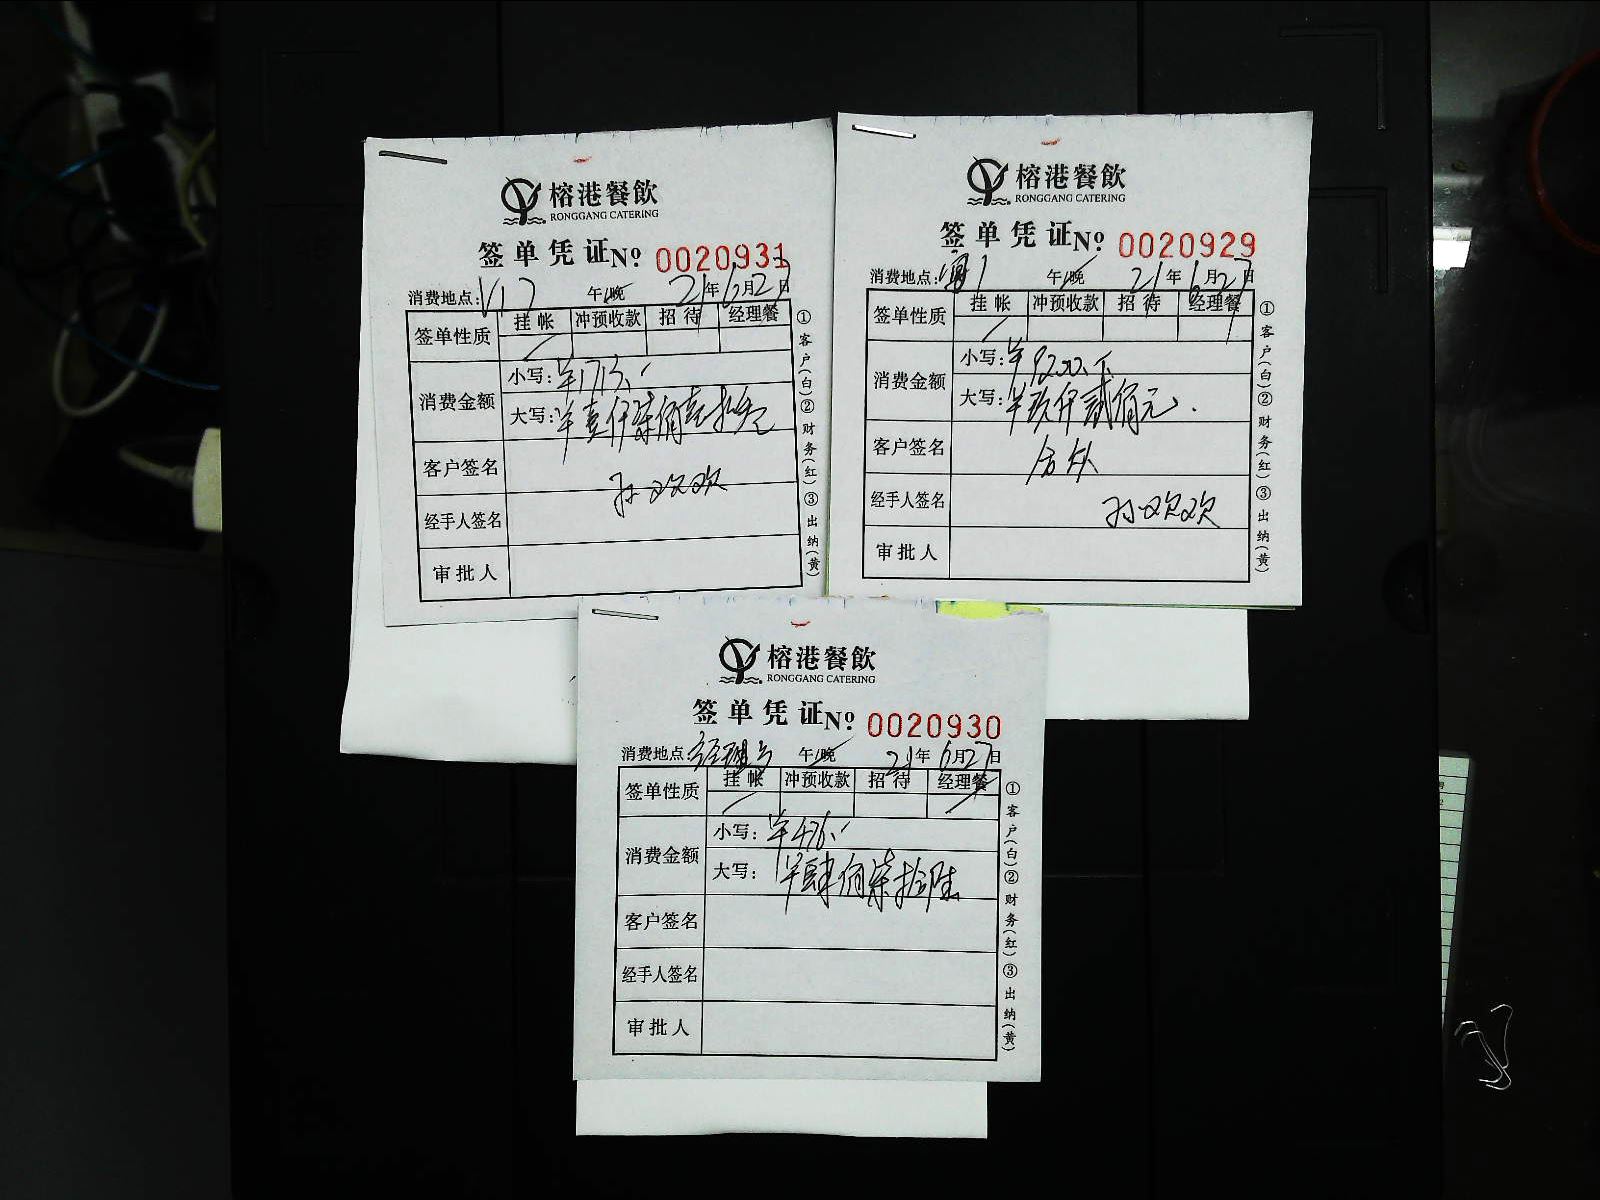 榕港餐飲
RONGGANG CATERING
签单凭证 No 0020931
消费地点: V17 午/晚 21年6月27日
签单性质 挂帐 冲预收款 招待 经理餐
消费金额 小写: ¥1713.-
大写: 半壹仟柒佰壹拾叁元
客户签名
经手人签名 孙欢欢
审批人
①客户(白)②财务(红)③出纳(黄)
榕港餐飲
RONGGANG CATERING
签单凭证 No 0020929
消费地点: 1 午/晚 21年6月27日
签单性质 挂帐 冲预收款 招待 经理餐
消费金额 小写: ¥9200.
大写: 半玖仟贰佰元.
客户签名
经手人签名 孙欢欢
审批人
①客户(白)②财务(红)③出纳(黄)
榕港餐飲
RONGGANG CATERING
签单凭证 No 0020930
消费地点: 经理 午/晚 21年6月27日
签单性质 挂帐 冲预收款 招待 经理餐
消费金额 小写: ¥476.-
大写: 半肆佰柒拾陆
客户签名
经手人签名
审批人
①客户(白)②财务(红)③出纳(黄)